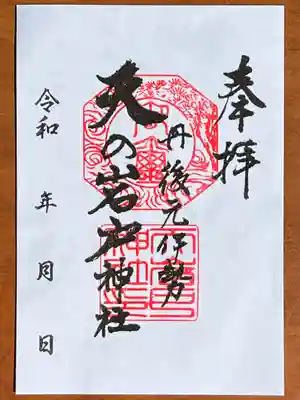 奉拝
丹後元伊勢
天の岩戸神社
令和　年　月　日